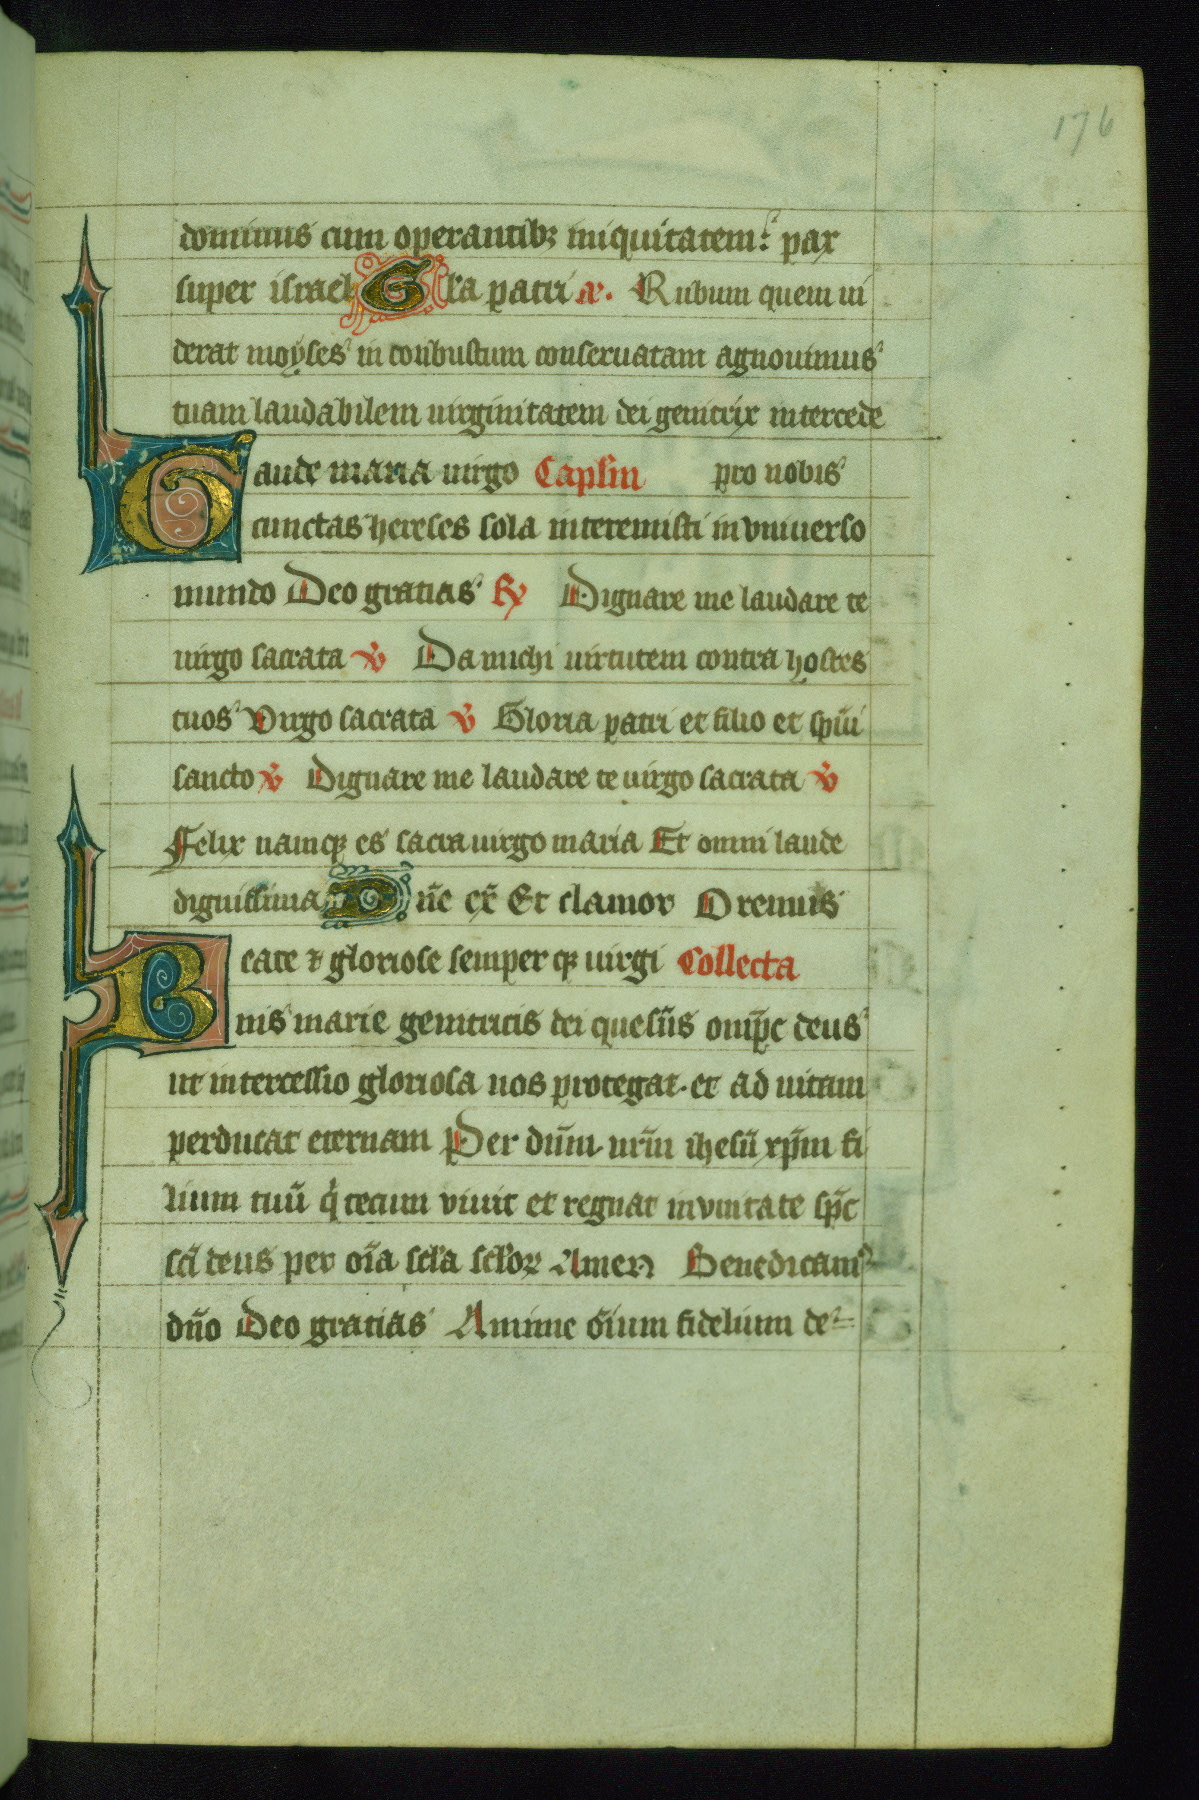 176
dominus cum operantibꝫ iniquitatem: pax
super israel Gl'a patri a͞. Rubum quem ui
derat moyses in conbustum conseruatam agnouimus
tuam laudabilem uirginitatem dei genitrix intercede
Gaude maria uirgo Caplm̄ pro nobis
cunctas hereses sola interemisti in vniuerso
mundo Deo gratias ℟ Dignare me laudare te
uirgo sacrata v̄ Da michi uirtutem contra hostes
tuos Virgo sacrata v̄ Gloria patri et filio et sp̄ui
sancto v̄ Dignare me laudare te uirgo sacrata v̄
Felix namqꝫ es sacra uirgo maria Et omni laude
dignissima Dn̄e ex̄ Et clamor Oremus
Beate ⁊ gloriose semper qꝫ uirgi Collecta
nis marie genitricis dei quesūs omp̄c deus
ut intercessio gloriosa nos protegat. et ad uitam
perducat eternam Per dūm. nr̄m ihesū xp̄m fi
lium tuū q̇ tecum viuit et regnat in vnitate sp̄c
sc̄i deus per oīa sc̄la sc̄loꝝ Amen Benedicamꝰ
dn̄o Deo gratias Anime oīum fidelium de-